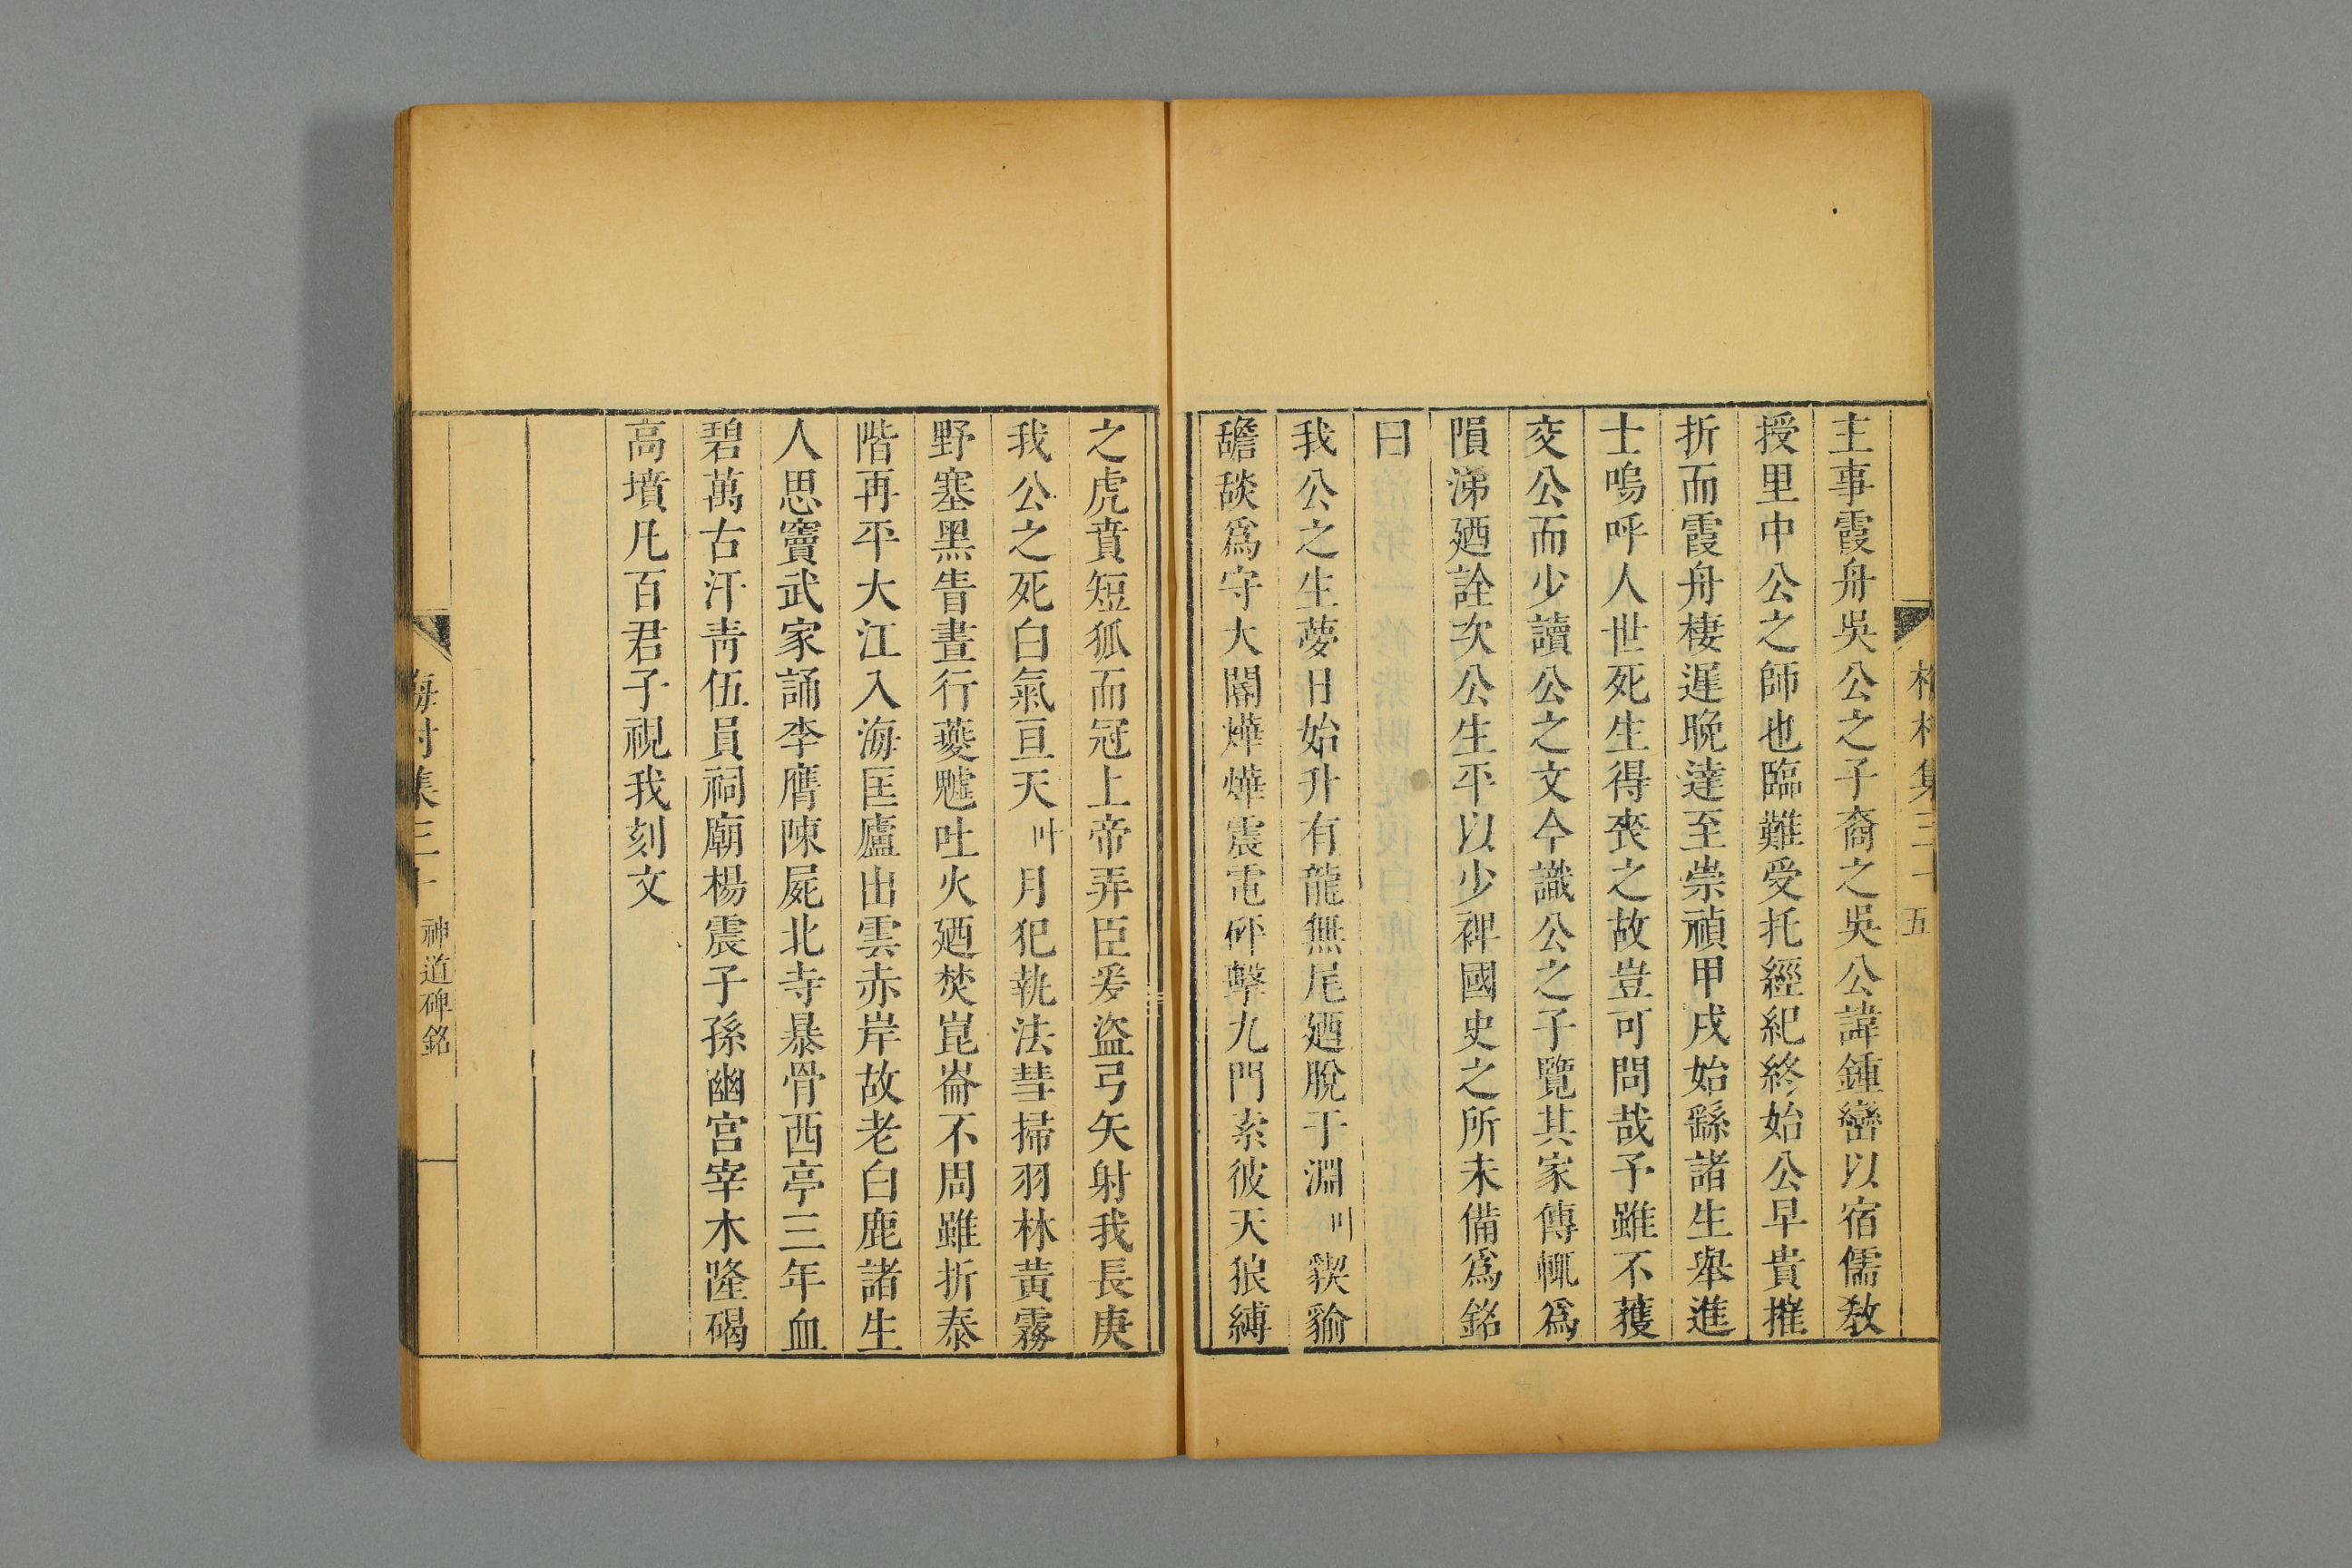 主事霞舟吳公之子裔之吳公諱鍾巒以宿儒敎
授里中公之師也臨難受托經紀終始公早貴摧
折而霞舟棲遲晚達至崇禎甲戌始繇諸生舉進
士嗚呼人世死生得喪之故豈可問哉予雖不獲
交公而少讀公之文今識公之子覽其家傳輒爲
隕涕廼詮次公生平以少裨國史之所未備爲銘
曰
我公之生夢日始升有龍無尾廼脫于淵叶貏貐
䑛舕爲守大閽燁燁震電砰擊九門索彼天狼縛
之虎賁短狐而冠上帝弄臣爰盜弓矢射我長庚
我公之死白氣亘天叶月犯執法彗掃羽林黃霧
野塞黑眚晝行夔魖吐火廼焚崑崙不周雖折泰
階再平大江入海匡廬出雲赤岸故老白鹿諸生
人思竇武家誦李膺陳屍北寺暴骨西亭三年血
碧萬古汗靑伍員祠廟楊震子孫幽宮宰木隆碣
高墳凡百君子視我刻文
集三十 神道碑銘
五